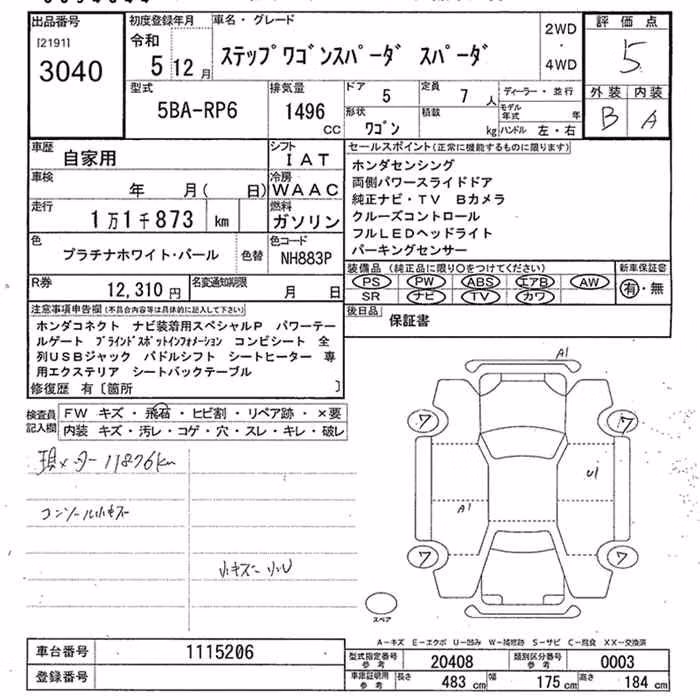 出品番号
[2191]
3040
初度登録年月
令和
5 12月
車名・グレード
ステップワゴンスパーダ スパーダ
2WD
・
4WD
評価点
5
外装 内装
B A
型式
5BA-RP6
排気量
1496
CC
ドア
5
定員
7 人
形状
ワゴン
積載
kg
ディーラー・並行
モデル年式 年
ハンドル 左・右
車歴
自家用
シフト
IAT
車検
年 月( 日)
冷房
WAAC
走行
1万1千873 km
燃料
ガソリン
色
プラチナホワイト・パール
色替
色コード
NH883P
R券
12,310 円
名変通知期限
月 日
セールスポイント(正常に機能するものに限ります)
ホンダセンシング
両側パワースライドドア
純正ナビ・TV Bカメラ
クルーズコントロール
フルLEDヘッドライト
パーキングセンサー
装備品 (純正品に限り○をつけてください)
PS PW ABS エアB AW
SR ナビ TV カワ
新車保証書
有・無
後日品
保証書
注意事項申告欄(不具合内容等は具体的に記入して下さい)
ホンダコネクト ナビ装着用スペシャルP パワーテー
ルゲート ブラインドスポットインフォメーション コンビシート 全
列USBジャック パドルシフト シートヒーター 専
用エクステリア シートバックテーブル
修復歴 有〔箇所 〕
検査員
記入欄
FW キズ・飛石・ヒビ割・リペア跡・×要
内装 キズ・汚レ・コゲ・穴・スレ・キレ・破レ
現メーター11876km
コンソール小キズ
小キズ 小U
A1
ワ
ワ
U1
A1
ワ
ワ
スペア
A-キズ E-エクボ U-凹み W-補修跡 S-サビ C-腐食 XX-交換済
車台番号
1115206
登録番号
型式指定番号
参考
20408
類別区分番号
参考
0003
車庫証明用
参考
長さ
483 cm
幅
175 cm
高さ
184 cm